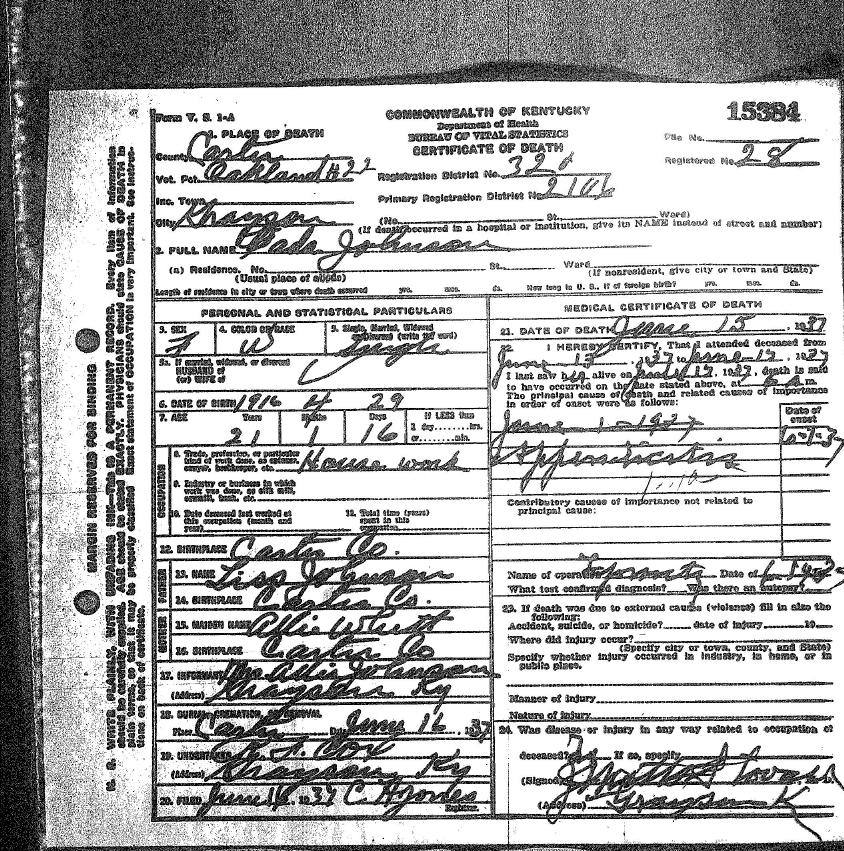 Form V. S. 1-A
COMMONWEALTH OF KENTUCKY
Department of Health
BUREAU OF VITAL STATISTICS
CERTIFICATE OF DEATH
15384
File No.
Registered No. 28
1. PLACE OF DEATH
County Carter
Vot. Pct. Oakland #22
Registration District No. 320
Inc. Town
Primary Registration District No.
City Grayson
(No. St. Ward)
(If death occurred in a hospital or institution, give its NAME instead of street and number)
2. FULL NAME Johnson
(a) Residence. No. St. Ward
(Usual place of abode)
(If nonresident, give city or town and State)
Length of residence in city or town where death occurred yrs. mos. ds. How long in U. S., if of foreign birth? yrs. mos. ds.
PERSONAL AND STATISTICAL PARTICULARS
3. SEX F
4. COLOR OR RACE W
5. Single, Married, Widowed or Divorced (write the word) Single
5a. If married, widowed, or divorced
HUSBAND of
(or) WIFE of
6. DATE OF BIRTH 1916 4 29
7. AGE Years 21 Months 1 Days 16
If LESS than
1 day hrs.
or min.
OCCUPATION
8. Trade, profession, or particular
kind of work done, as spinner,
sawyer, bookkeeper, etc. House work
9. Industry or business in which
work was done, as silk mill,
sawmill, bank, etc.
10. Date deceased last worked at
this occupation (month and
year)
11. Total time (years)
spent in this
occupation
12. BIRTHPLACE Carter Co.
FATHER
13. NAME Johnson
14. BIRTHPLACE Carter Co.
MOTHER
15. MAIDEN NAME Allie
16. BIRTHPLACE Carter Co
17. INFORMANT Mrs Allie Johnson
(Address) Grayson Ky
18. BURIAL, CREMATION, OR REMOVAL
Place Carter Date June 16, 1937
19. UNDERTAKER Cox
(Address) Grayson Ky
20. FILED June 1937 C. H. Jones
Registrar.
MEDICAL CERTIFICATE OF DEATH
21. DATE OF DEATH June 15, 1937
22. I HEREBY CERTIFY, That I attended deceased from
June 1937 to June 1937
I last saw her alive on 1937, death is said
to have occurred on the date stated above, at m.
The principal cause of death and related causes of importance
in order of onset were as follows:
Date of
onset
June 1-1937
Appendicitis
Contributory causes of importance not related to
principal cause:
Name of operation Date of
What test confirmed diagnosis? Was there an autopsy?
23. If death was due to external causes (violence) fill in also the
following:
Accident, suicide, or homicide? date of injury 19
Where did injury occur?
(Specify city or town, county, and State)
Specify whether injury occurred in industry, in home, or in
public place.
Manner of injury
Nature of injury
24. Was disease or injury in any way related to occupation of
deceased? If so, specify
(Signed)
(Address) Grayson K
MARGIN RESERVED FOR BINDING
N. B. WRITE PLAINLY, WITH UNFADING INK—THIS IS A PERMANENT RECORD. Every item of information
should be carefully supplied. AGE should be stated EXACTLY. PHYSICIANS should state CAUSE OF DEATH in
plain terms, so that it may be properly classified. Exact statement of OCCUPATION is very important. See instruc-
tions on back of certificate.